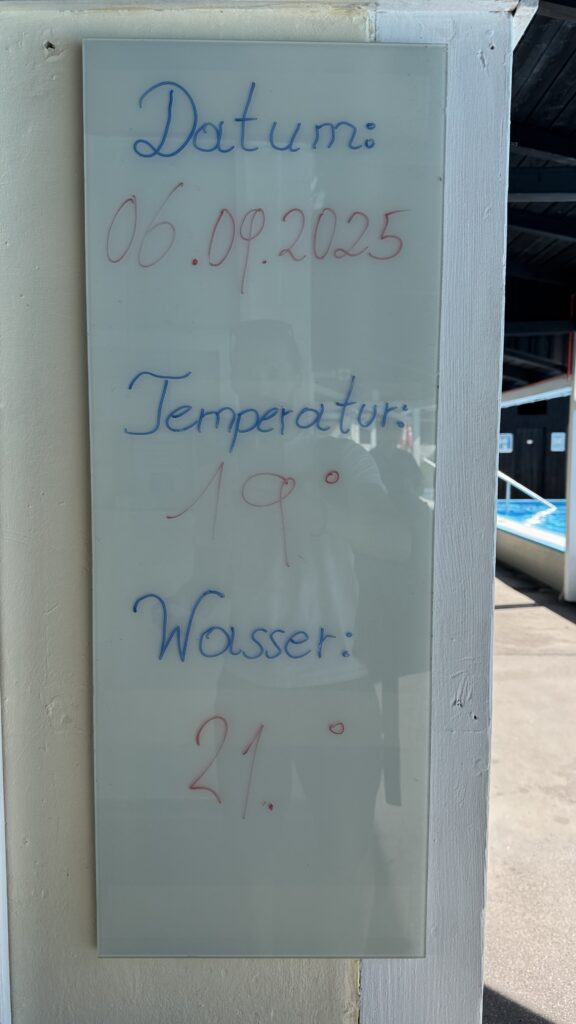 Datum:
06.09.2025
Temperatur:
19°
Wasser:
21.°